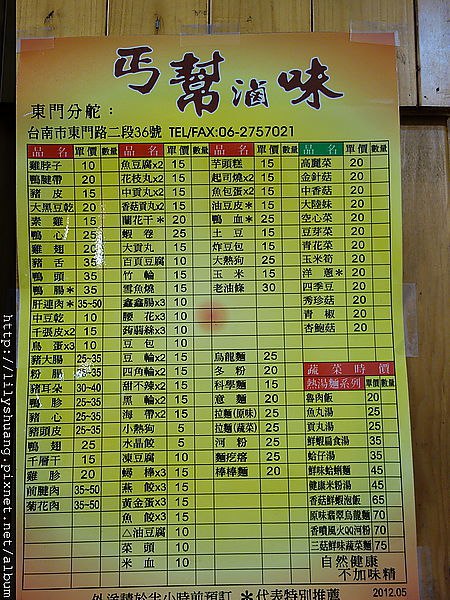 丐幫滷味
東門分舵：
台南市東門路二段36號 TEL/FAX:06-2757021
品名 單價 數量 品名 單價 數量 品名 單價 數量 品名 單價 數量
雞脖子 10 魚豆腐×2 15 芋頭糕 15 高麗菜 20
鴨腱帶 20 花枝丸×2 15 起司燒×2 15 金針菇 20
豬皮 15 中貢丸×2 15 魚包蛋×2 15 中香菇 20
大黑豆乾 20 香菇貢丸×2 20 油豆皮* 15 大陸妹 20
素雞 15 蘭花干* 20 鴨血* 15 空心菜 20
鴨心 25 蝦卷 25 土豆 15 豆芽菜 20
雞翅 20 大貢丸 15 炸豆包 15 青花菜 20
豬舌 35 百頁豆腐 10 大熱狗 25 玉米筍 20
鴨頭 35 竹輪 15 玉米 15 洋蔥* 20
鴨腸* 35 雪魚燒 15 老油條 30 四季豆 20
肝連肉* 35~50 鑫鑫腸×3 10 秀珍菇 20
中豆乾 10 腰花×3 10 青椒 20
千張皮×2 15 蒟蒻絲×3 10 杏鮑菇 20
鳥蛋×3 10 豆包 10
豬大腸 25~35 豆輪×2 15 烏龍麵 25
粉腸 25~35 四角輪×2 15 冬粉 20 蔬菜時價
豬耳朵 30~40 甜不辣×2 15 科學麵 15 熱湯麵系列 單價 數量
鴨胗 25~35 黑輪×2 15 意麵 20 魯肉飯 20
豬心 25~35 海帶×2 15 拉麵(原味) 25 魚丸湯 25
豬頭皮 25~35 小熱狗 5 拉麵(蔬菜) 25 貢丸湯 25
鴨翅 25 水晶餃 5 河粉 25 鮮蝦扁食湯 35
千層干 15 凍豆腐 10 麵疙瘩 25 蛤仔湯 35
雞胗 20 蟳棒×3 15 棒棒麵 20 鮮味蛤蜊麵 45
前腱肉 35~50 燕餃×3 15 健康米粉湯 45
菊花肉 35~50 黃金蛋×3 15 香菇鮮蝦泡飯 65
魚餃×3 15 原味翡翠烏龍麵 70
△油豆腐 10 香噴風火QQ河粉 70
菜頭 10 三菇鮮味蔬菜麵 75
米血 10 自然健康
不加味精
外送請於半小時前預訂 *代表特別推薦 2012.05
http://lilyshuang.pixnet.net/album